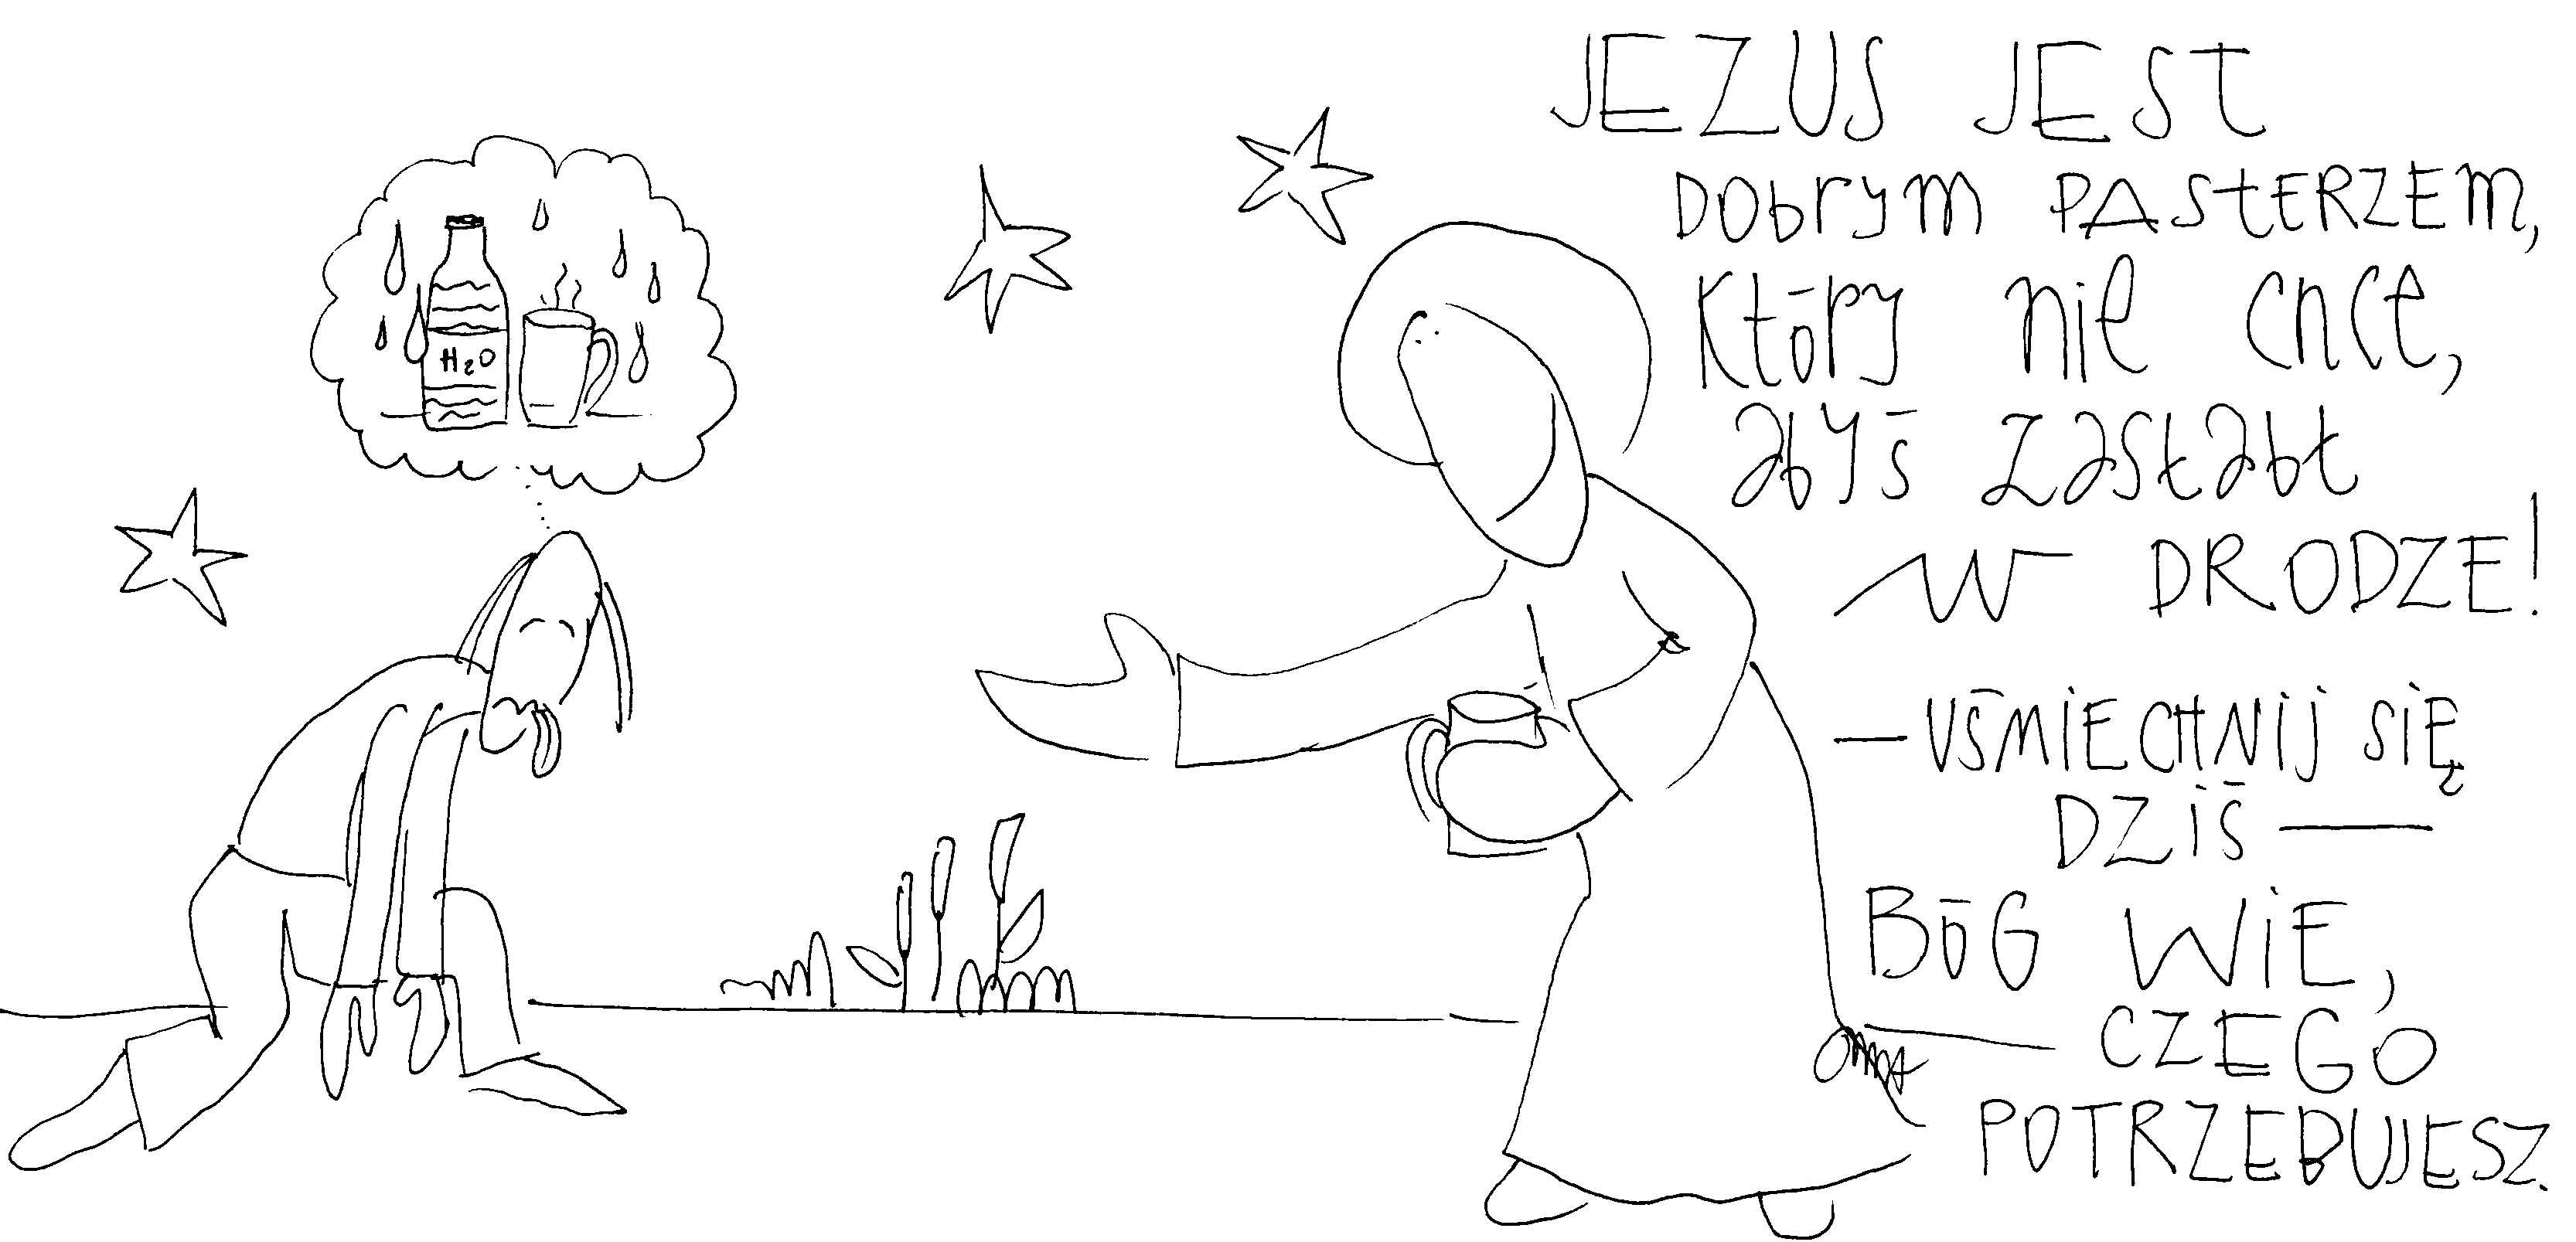 H₂O
JEZUS JEST
DObrym PASTERZEM,
Który nie chce,
abyś zasłabł
w DRODZE!
— UŚMIECHNIJ SIĘ
DZIŚ —
BÓG WIE,
CZEGO
POTRZEBUJESZ.